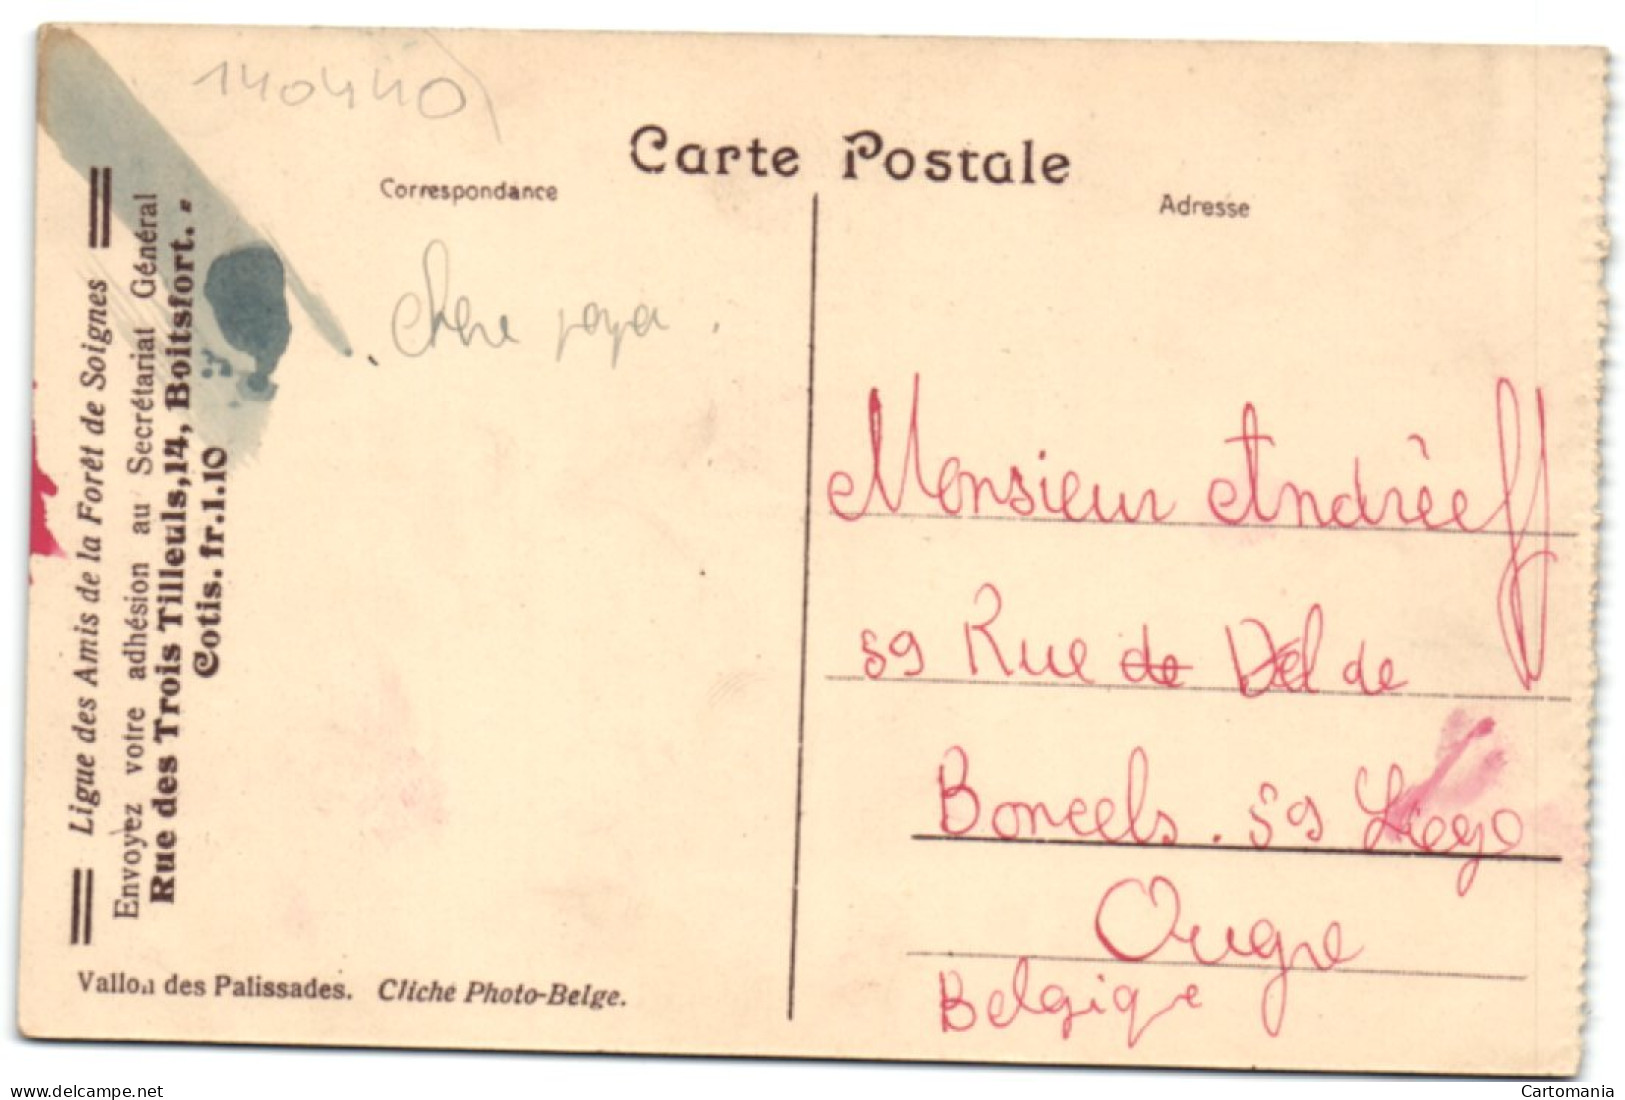 140440
Carte Postale
Correspondance
Adresse
chere papa.
Ligue des Amis de la Forêt de Soignes
Envoyez votre adhésion au Secrétariat Général
Rue des Trois Tilleuls,14, Boitsfort. -
Cotis. fr.1.10
Vallon des Palissades. Cliché Photo-Belge.
Monsieur Andrèeff
59 Rue de Del de
Boncels. 59 Liege
Ougre
Belgique
delcampe.net
Cartomania